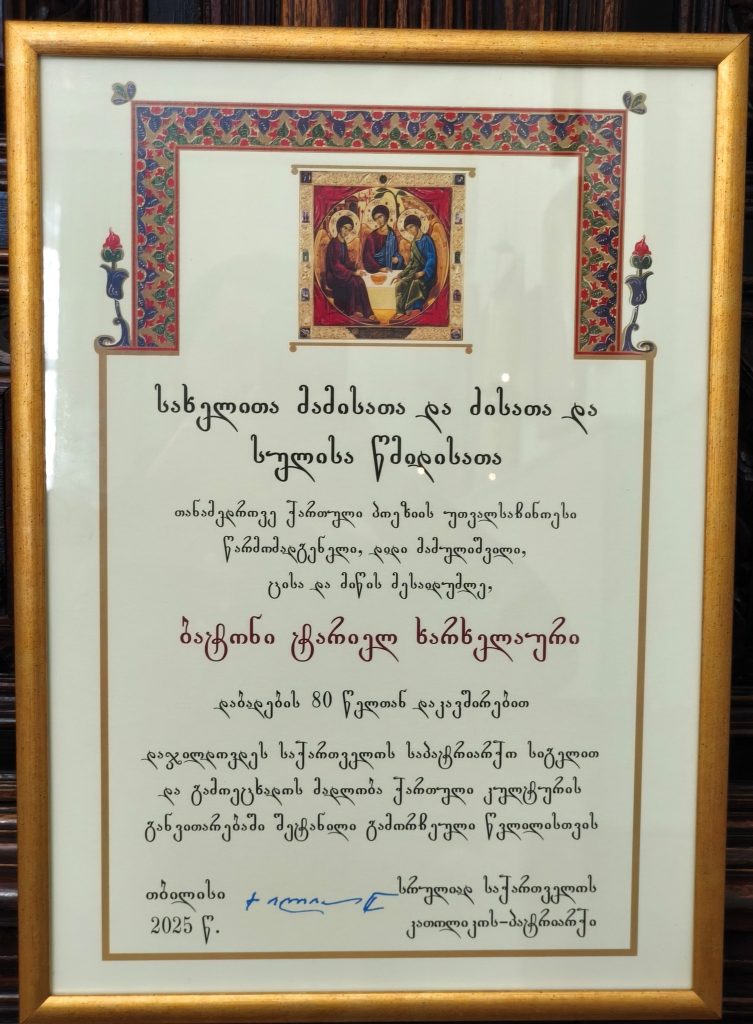 სახელითა მამისათა და ძისათა და
სულისა წმიდისათა
თანამედროვე ქართული პოეზიის უთვალსაჩინოესი
წარმომადგენელი, დიდი მამულიშვილი,
ცისა და მიწის მესაიდუმლე,
ბატონი ტარიელ ხარხელაური
დაბადების 80 წელთან დაკავშირებით
დაჯილდოვდეს საქართველოს საპატრიარქო სიგელით
და გამოეცხადოს მადლობა ქართული კულტურის
განვითარებაში შეტანილი გამორჩეული წვლილისთვის
თბილისი
2025 წ.
სრულიად საქართველოს
კათოლიკოს-პატრიარქი